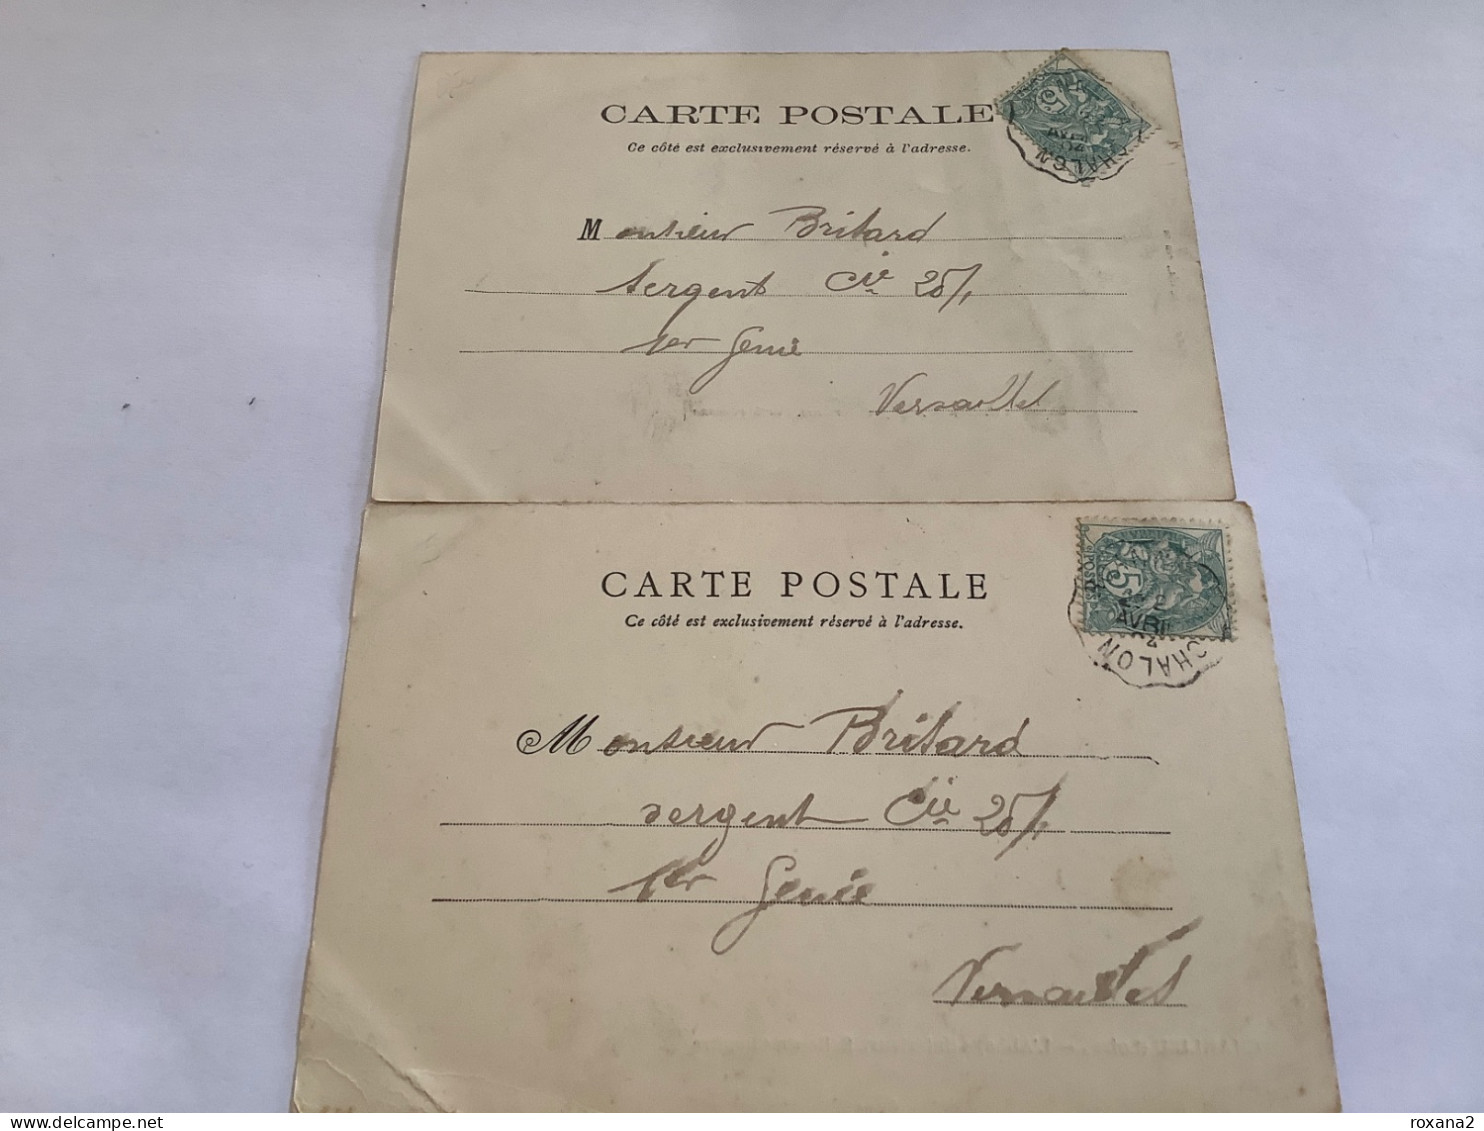 CARTE POSTALE
Ce côté est exclusivement réservé à l'adresse.
5c
CHALON
Monsieur Britard
Sergent Cie 25/1
1er Genie
Versailles
CARTE POSTALE
Ce côté est exclusivement réservé à l'adresse.
5c
2
AVRIL
04
CHALON
Monsieur Britard
sergent Cie 25/1
1er Genie
Versailles
roxana2